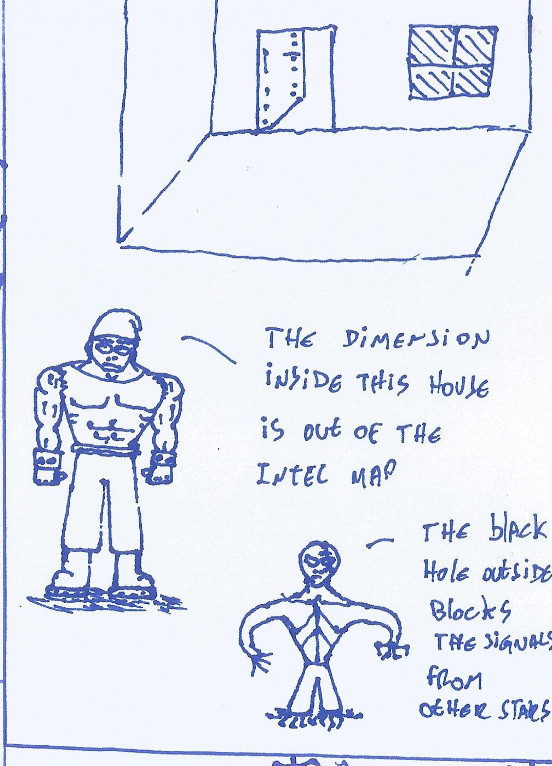 THE DIMENSION
INSIDE THIS HOUSE
IS OUT OF THE
INTEL MAP
THE BLACK
HOLE OUTSIDE
BLOCKS
THE SIGNALS
FROM
OTHER STARS